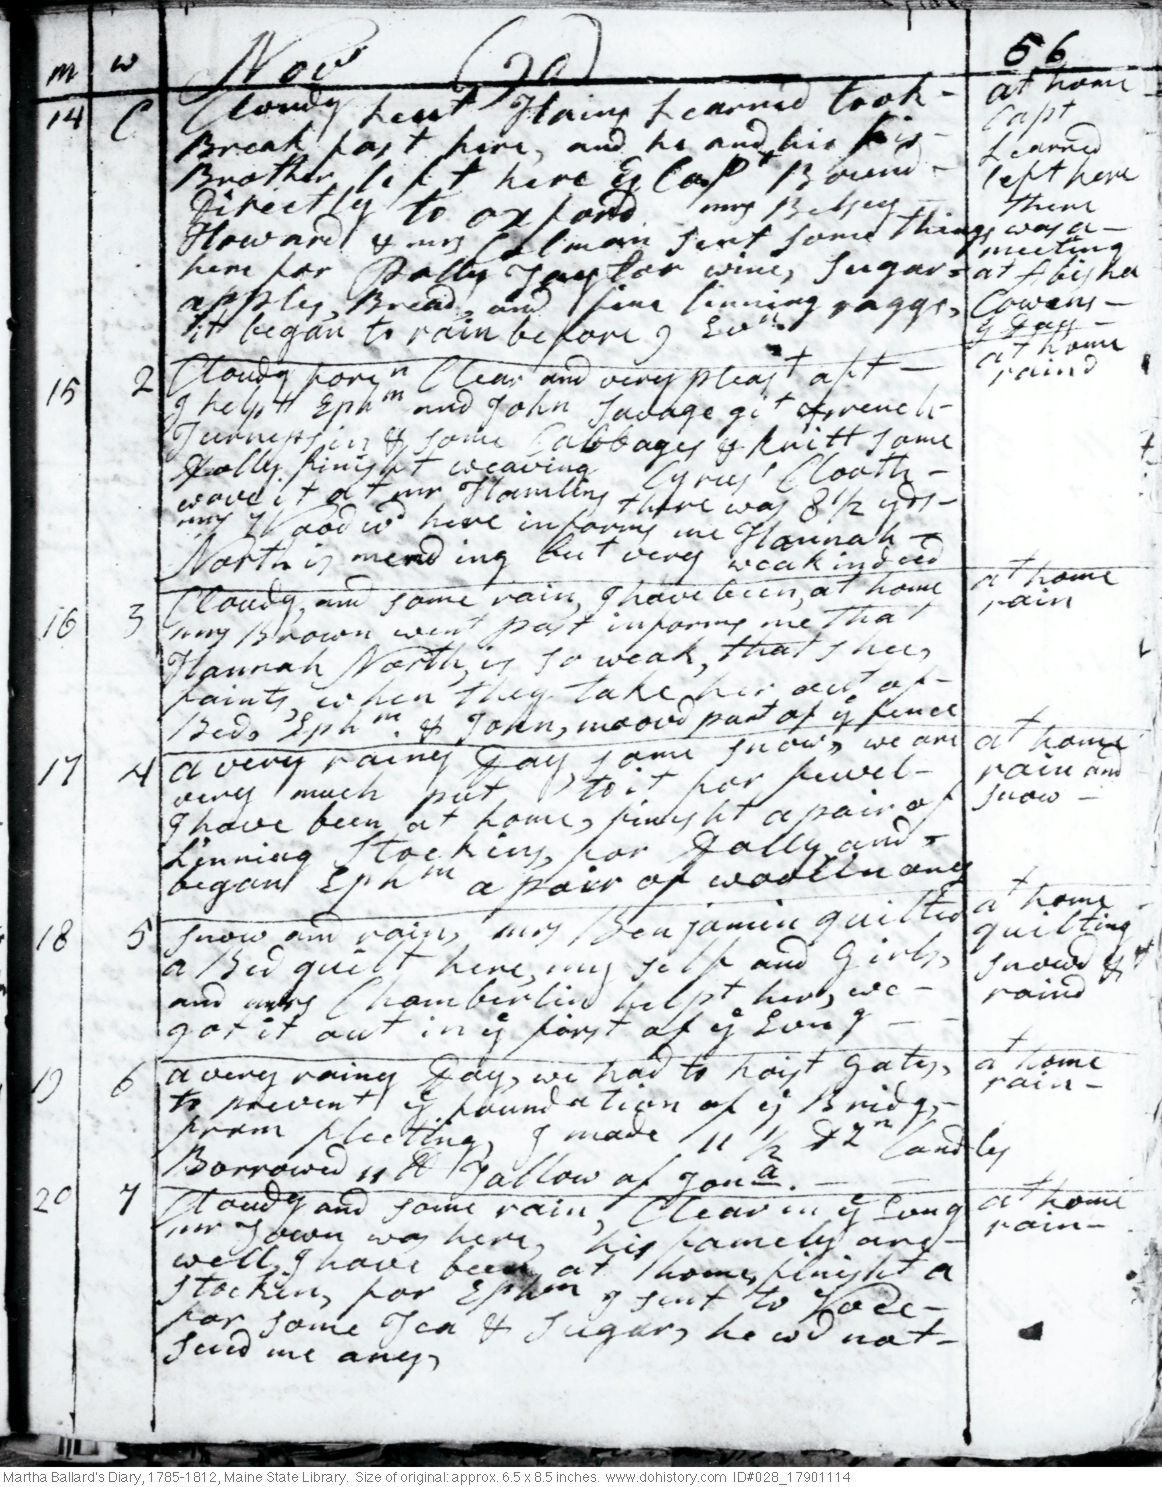 m w Nov (90) 56
14 C Cloudy Leut Hains Learned took - at home
Break fast here, and he and his - Capt
Brother left here & Capt Bound - Learned
Directly to oxford mrs Betsey left here
Howard & mrs Colman sent some things There was a -
here for Dolly Taylor wine, Sugar = meeting
apples, Bread, and fine linning raggs, at
it began to rain before Evng Cowens -
at home
raind
15 2 Cloudy foren Clear and very pleast aft -
I helpt Ephm and John Savage git french
Turnets in & some Cabbages & knitt some
Dolly finisht weaving Cyrus' Cloath -
wove it at mr Hamlins there was 8 1/2 yds -
mrs Wood wd here informs me Hannah -
North is mending but very weak indeed
16 3 Cloudy, and some rain, I have been, at home at home
mrs Brown went past informs me that rain
Hannah North, is so weak, that shee,
faints, when they take her out of -
Bed, Ephm. & John, moovd part of ye fence
17 4 a very rainy Day, some snow, we are at home
very much put to it for fewel - rain and
I have been at home, finisht a pair of snow -
Linning Stockins, for Dolly and =
began Ephm a pair of woollin ones
18 5 snow and rain, mrs Benjamin quilted at home
a Bed quilt here, my self and Girls, quilting
and mrs Chamberlin helpt her, we - snowd &
got it out in ye first of ye Evng - - raind
19 6 a very rainy Day, we had to hoist Gates, at home
to prevent ye foundation of ye Bridg, - rain -
from fleeting, I made 11 1/2 Dzn Candles
Borrowed 11 lb Tallow of Jona. - -
20 7 Cloudy and some rain, Clear in ye Evng at home
mr Town was here, his famely are - rain -
well, I have been at home, finisht a
Stockin, for Ephm I sent to
for some Tea & Sugar, he wd not -
send me any,
Martha Ballard's Diary, 1785-1812, Maine State Library. Size of original: approx. 6.5 x 8.5 inches. www.dohistory.com ID#028_17901114